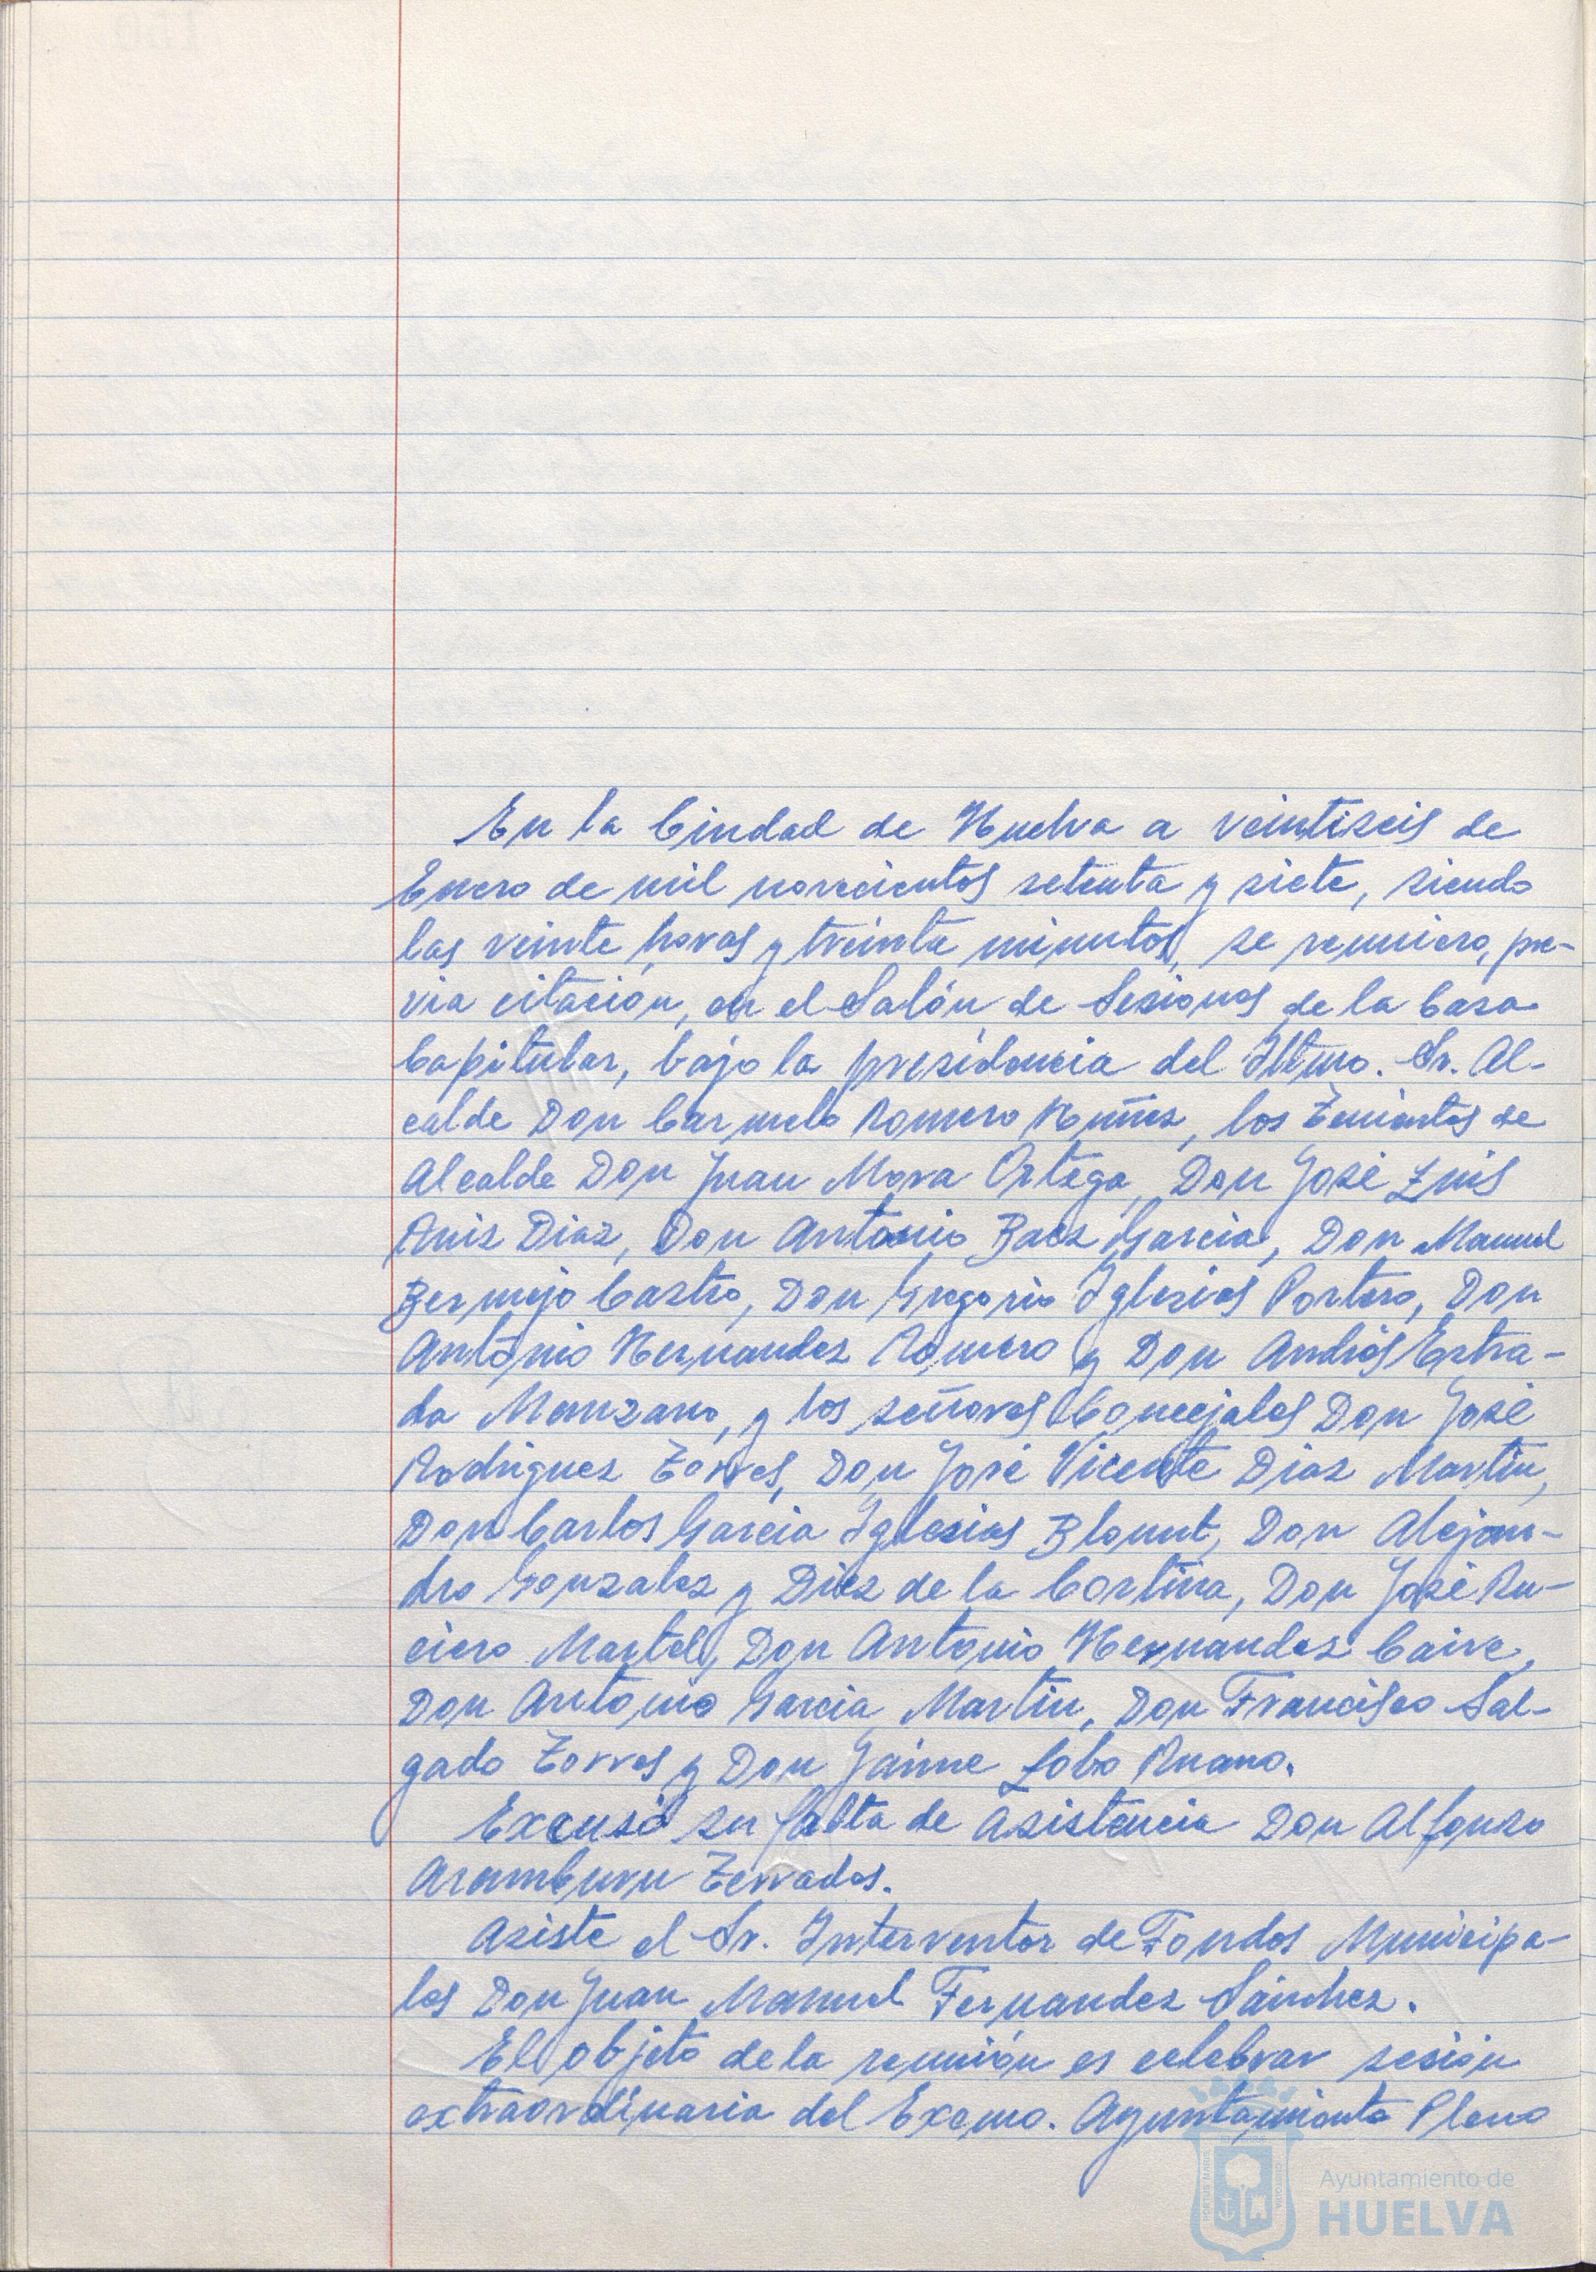 En la Ciudad de Huelva a veintiseis de
Enero de mil novecientos setenta y siete, siendo
las veinte horas y treinta minutos, se reuniero, pre-
via citación, en el Salón de Sesiones de la Casa
Capitular, bajo la presidencia del Iltmo. Sr. Al-
calde Don Carmelo Romero Nuñez, los Tenientes de
Alcalde Don Juan Mora Ortega, Don José Luis
Ruiz Diaz, Don Antonio Baez Garcia, Don Manuel
Bermejo Castro, Don Gregorio Iglesias Portero, Don
Antonio Hernandez Romero y Don Andrés Estra-
da Manzano, y los señores Concejales Don José
Rodriguez Torres, Don José Vicente Diaz Martin,
Don Carlos Garcia Iglesias Blount, Don Alejan-
dro Gonzalez y Diez de la Cortina, Don José Ru-
ciero Martel, Don Antonio Hernandez Caire,
Don Antonio Garcia Martin, Don Francisco Sal-
gado Torres y Don Jaime Lobo Ruano.
Excusó su falta de asistencia Don Alfonso
Aramburu Terrades.
Asiste el Sr. Interventor de Fondos Municipa-
les Don Juan Manuel Fernandez Sánchez.
El objeto de la reunión es celebrar sesión
extraordinaria del Excmo. Ayuntamiento Pleno
Ayuntamiento de
HUELVA